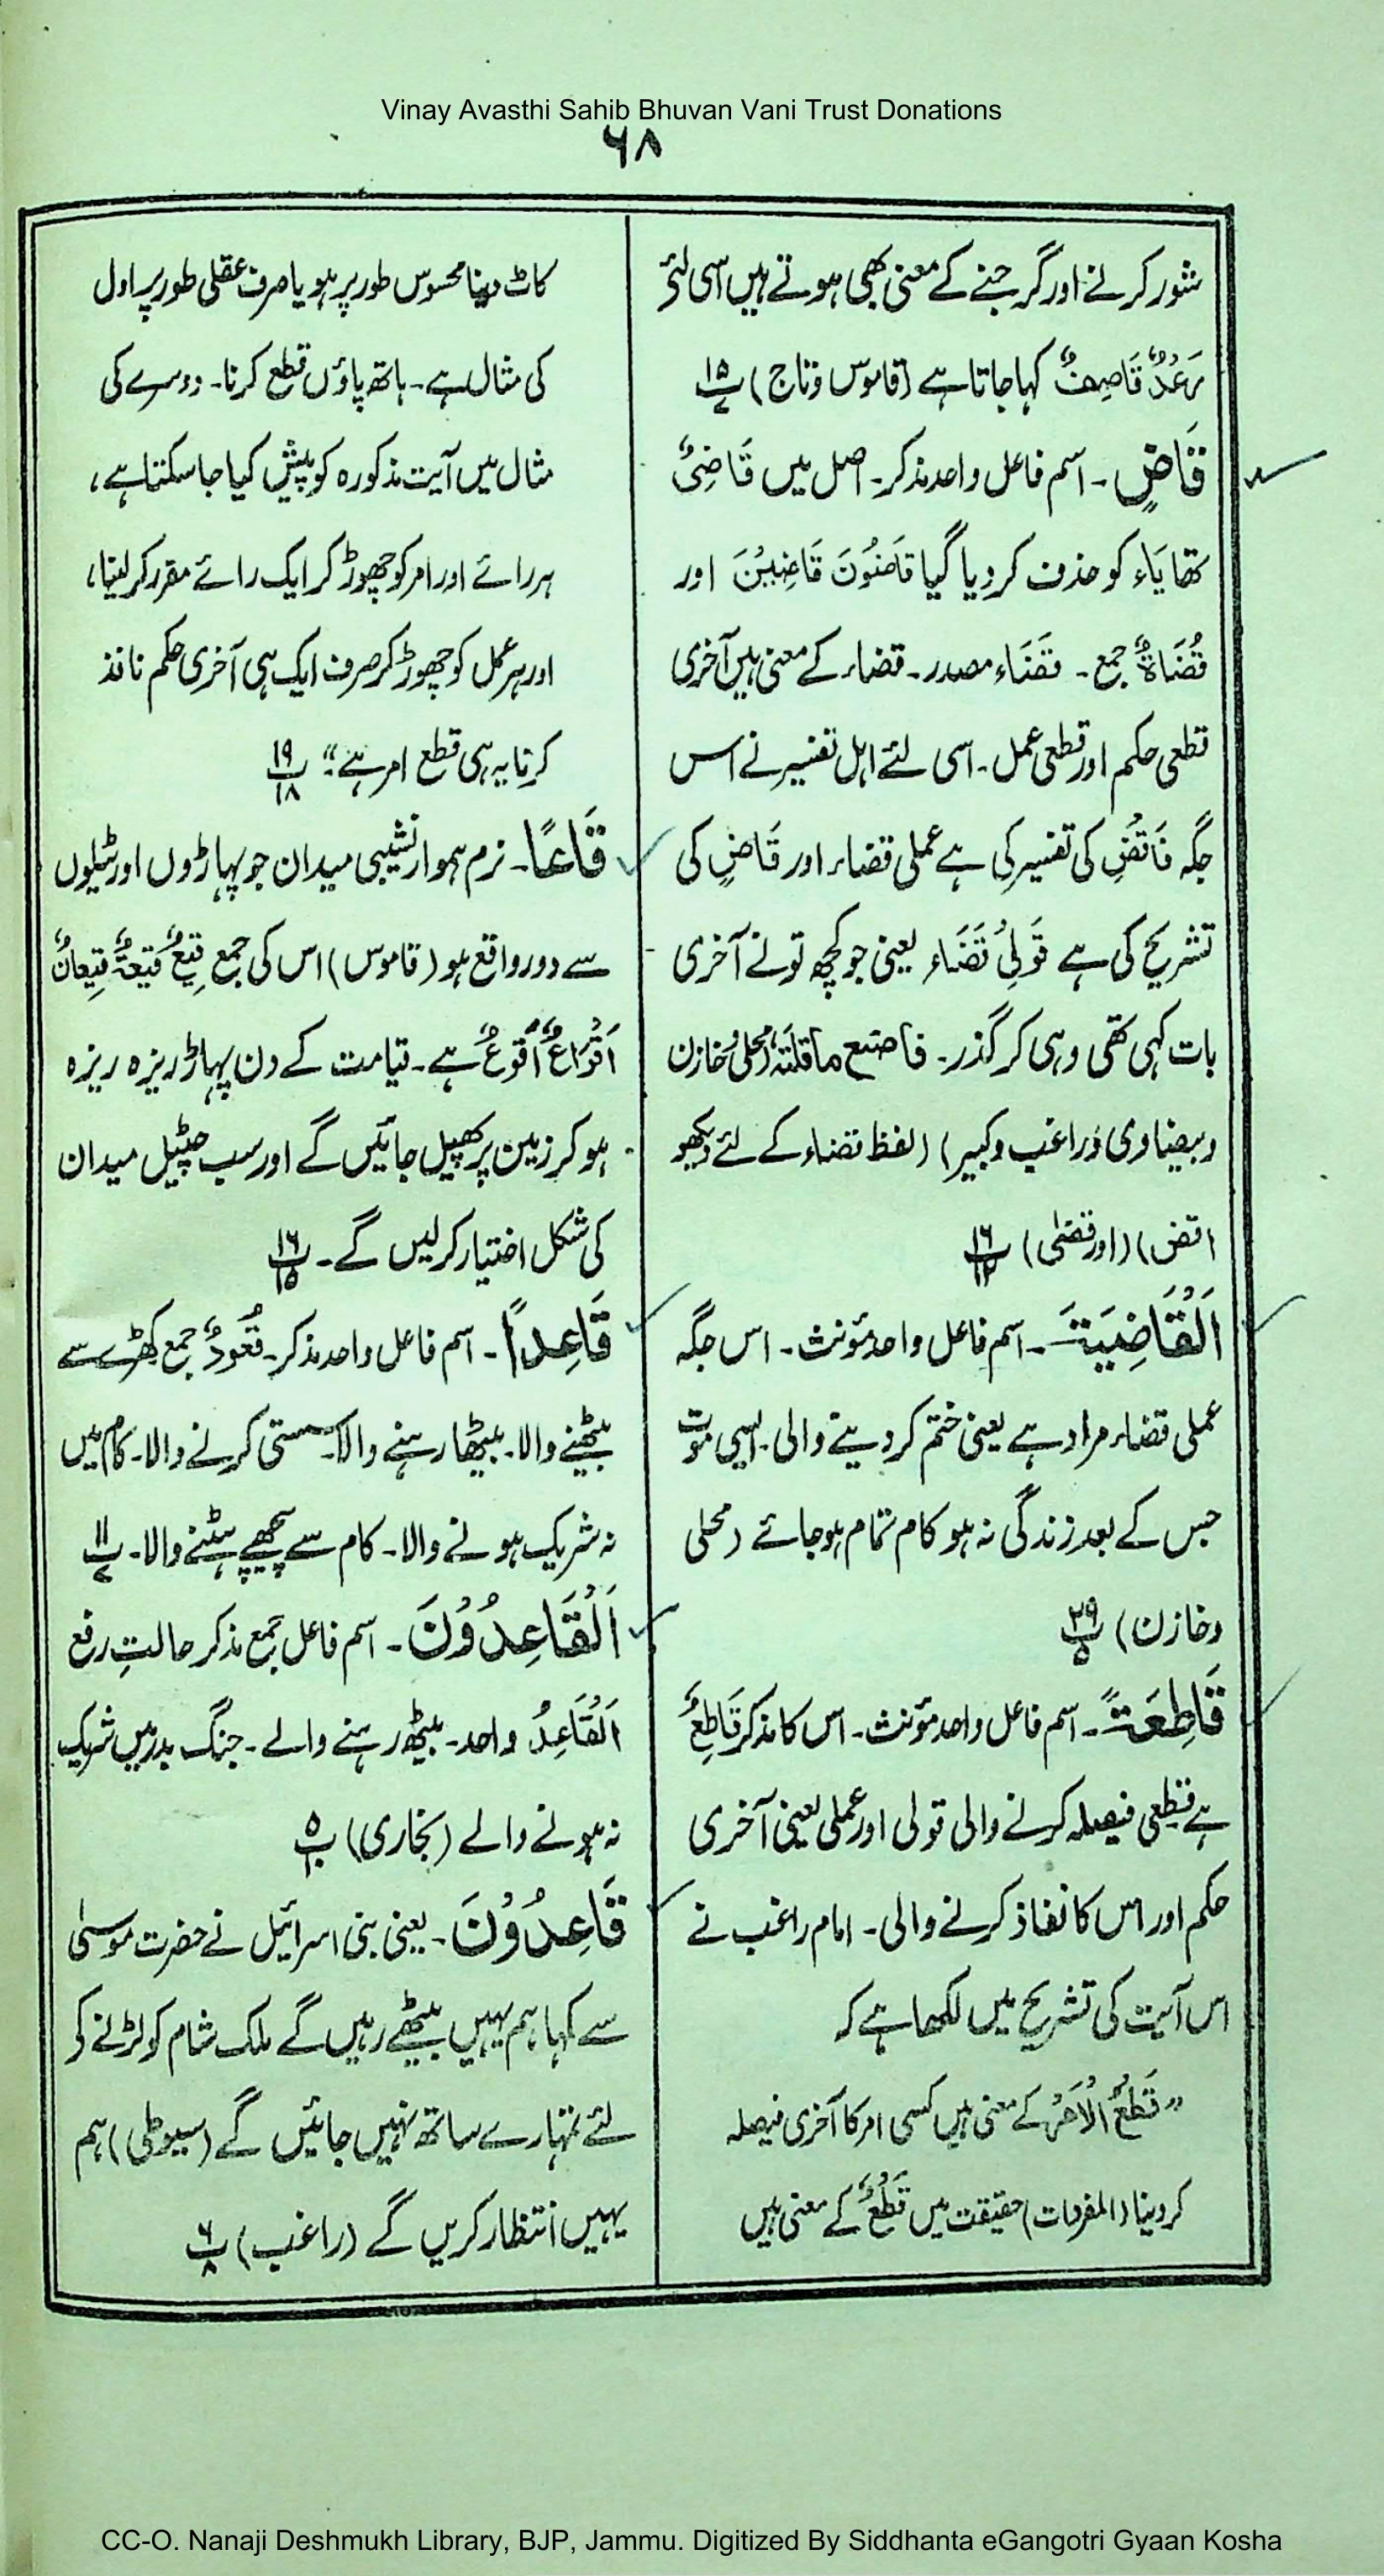 Vinay Avasthi Sahib Bhuvan Vani Trust Donations
۶۸
شور کرنے اور گرجنے کے معنی بھی ہوتے ہیں اسی لئے
رَعْدٌ قَاصِفٌ کہا جاتا ہے (قاموس و تاج) ۱۵
قَاضٍ۔ اسم فاعل واحد مذکر۔ اصل میں قَاضِیٌ
تھا یَاء کو حذف کر دیا گیا قَاضُوْنَ قَاضِیْنَ اور
قُضَاۃٌ جمع۔ قَضَاء مصدر۔ قضاء کے معنی ہیں آخری
قطعی حکم اور قطعی عمل۔ اسی لئے اہل تفسیر نے اس
جگہ فَاقْضِ کی تفسیر کی ہے عملی قضاء اور قَاضٍ کی
تشریح کی ہے قَوْلِیْ قَضَاء یعنی جو کچھ تو نے آخری
بات کہی تھی وہی کر گذر۔ فاصنع ما قلتہ (محلی و خازن
و بیضاوی و راغب و کبیر) (لفظ قضاء کے لئے دیکھو
اقض) (اور قضٰی) پ ۱۶/۱۲
اَلْقَاضِیَۃَ۔ اسم فاعل واحد مؤنث۔ اس جگہ
عملی قضاء مراد ہے یعنی ختم کر دینے والی۔ ایسی موت
جس کے بعد زندگی نہ ہو کام تمام ہو جائے (محلی
و خازن) پ ۲۹/۵
قَاطِعَۃً۔ اسم فاعل واحد مؤنث۔ اس کا مذکر قَاطِعٌ
ہے قطعی فیصلہ کرنے والی قولی اور عملی یعنی آخری
حکم اور اس کا نفاذ کرنے والی۔ امام راغب نے
اس آیت کی تشریح میں لکھا ہے کہ
”قَطْعُ الْاَمْرِ کے معنی ہیں کسی امر کا آخری فیصلہ
کر دینا (المفردات) حقیقت میں قَطْعٌ کے معنی ہیں
کاٹ دینا محسوس طور پر ہو یا صرف عقلی طور پر اول
کی مثال ہے۔ ہاتھ پاؤں قطع کرنا۔ دوسرے کی
مثال میں آیت مذکورہ کو پیش کیا جا سکتا ہے،
ہر رائے اور امر کو چھوڑ کر ایک رائے مقرر کر لینا،
اور ہر عمل کو چھوڑ کر صرف ایک ہی آخری حکم نافذ
کرنا یہ ہی قطع امر ہے“ پ ۱۹/۱۸
قَاعًا۔ نرم ہموار نشیبی میدان جو پہاڑوں اور ٹیلوں
سے دور واقع ہو (قاموس) اس کی جمع قِیْعٌ قِیْعَۃٌ قِیْعَانٌ
اَقْوَاعٌ اَقْوُعٌ ہے۔ قیامت کے دن پہاڑ ریزہ ریزہ
ہو کر زمین پر پھیل جائیں گے اور سب چٹیل میدان
کی شکل اختیار کر لیں گے۔ پ ۱۶/۱۵
قَاعِدًا۔ اسم فاعل واحد مذکر۔ قُعُوْدٌ جمع کھڑے سے
بیٹھنے والا۔ بیٹھا رہنے والا۔ سستی کرنے والا۔ کام میں
نہ شریک ہونے والا۔ کام سے پیچھے ہٹنے والا۔ پ ۱۱
اَلْقَاعِدُوْنَ۔ اسم فاعل جمع مذکر حالتِ رفع
اَلْقَاعِدُ واحد۔ بیٹھ رہنے والے۔ جنگ بدر میں شریک
نہ ہونے والے (بخاری) پ ۵
قَاعِدُوْنَ۔ یعنی بنی اسرائیل نے حضرت موسیٰ
سے کہا ہم یہیں بیٹھے رہیں گے ملک شام کو لڑنے کو
لئے تمہارے ساتھ نہیں جائیں گے (سیوطی) ہم
یہیں انتظار کریں گے (راغب) پ ۶/۸
CC-O. Nanaji Deshmukh Library, BJP, Jammu. Digitized By Siddhanta eGangotri Gyaan Kosha